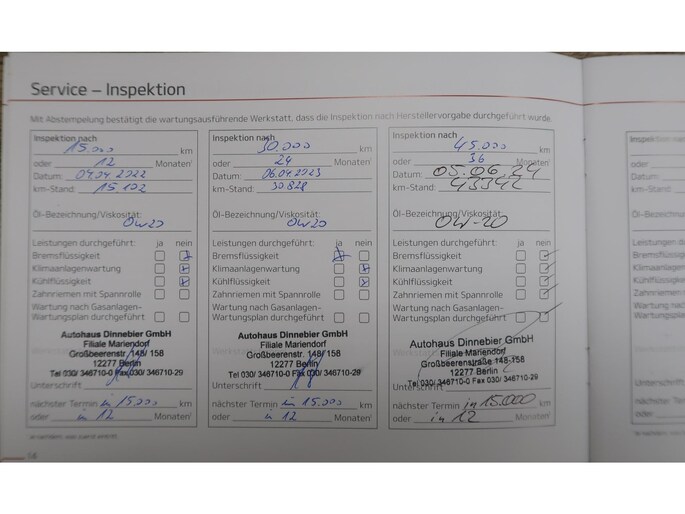 Service – Inspektion
Mit Abstempelung bestätigt die wartungsausführende Werkstatt, dass die Inspektion nach Herstellervorgabe durchgeführt wurde.
Inspektion nach
15.000 km
oder 12 Monaten¹
Datum: 04.04.2022
km-Stand: 15 102
Öl-Bezeichnung/Viskosität:
0W20
Leistungen durchgeführt: ja nein
Bremsflüssigkeit
Klimaanlagenwartung
Kühlflüssigkeit
Zahnriemen mit Spannrolle
Wartung nach Gasanlagen-
Wartungsplan durchgeführt
Autohaus Dinnebier GmbH
Filiale Mariendorf
Großbeerenstr. 148/ 158
12277 Berlin
Tel 030/ 346710-0 Fax 030/ 346710-29
Unterschrift
nächster Termin in 15.000 km
oder in 12 Monaten¹
Inspektion nach
30.000 km
oder 24 Monaten¹
Datum: 06.04.2023
km-Stand: 30828
Öl-Bezeichnung/Viskosität:
0W20
Leistungen durchgeführt: ja nein
Bremsflüssigkeit
Klimaanlagenwartung
Kühlflüssigkeit
Zahnriemen mit Spannrolle
Wartung nach Gasanlagen-
Wartungsplan durchgeführt
Autohaus Dinnebier GmbH
Filiale Mariendorf
Großbeerenstr. 148/ 158
12277 Berlin
Tel 030/ 346710-0 Fax 030/ 346710-29
Unterschrift
nächster Termin in 15.000 km
oder in 12 Monaten¹
Inspektion nach
45.000 km
oder 36 Monaten¹
Datum: 05.06.24
km-Stand: 43342
Öl-Bezeichnung/Viskosität:
0W-20
Leistungen durchgeführt: ja nein
Bremsflüssigkeit
Klimaanlagenwartung
Kühlflüssigkeit
Zahnriemen mit Spannrolle
Wartung nach Gasanlagen-
Wartungsplan durchgeführt
Autohaus Dinnebier GmbH
Filiale Mariendorf
Großbeerenstraße 148-158
12277 Berlin
Tel 030/ 346710-0 Fax 030/ 346710-29
Unterschrift
nächster Termin in 15.000 km
oder in 12 Monaten¹